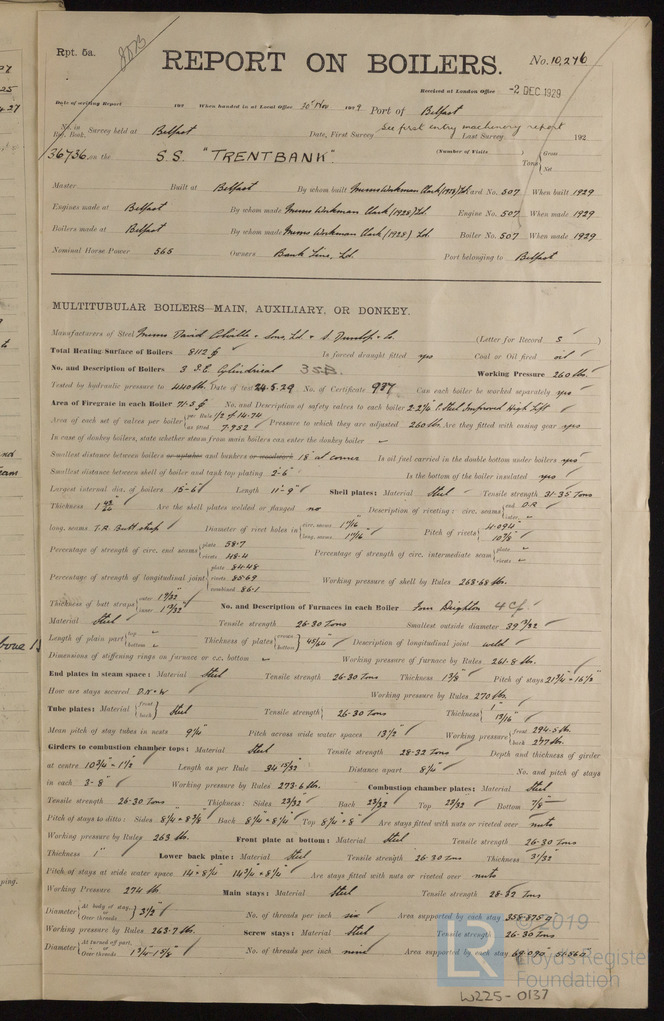 Rpt. 5a.
REPORT ON BOILERS.
No. 10,276
Received at London Office -2 DEC 1929
Date of writing Report 192 When handed in at Local Office 30 Nov 1929 Port of Belfast
No. in Reg. Book. Survey held at Belfast Date, First Survey see first entry machinery report Last Survey 192
36736 on the S.S. "TRENTBANK" (Number of Visits ) Tons Gross Net
Master Built at Belfast By whom built Messrs Workman Clark (1928) Ld. Yard No. 507 When built 1929
Engines made at Belfast By whom made Messrs Workman Clark (1928) Ld. Engine No. 507 When made 1929
Boilers made at Belfast By whom made Messrs Workman Clark (1928) Ld. Boiler No. 507 When made 1929
Nominal Horse Power 565 Owners Bank Line, Ld. Port belonging to Belfast
MULTITUBULAR BOILERS—MAIN, AUXILIARY, OR DONKEY.
Manufacturers of Steel Messrs David Colville & Sons, Ld. & S. Dunlop & Co (Letter for Record S )
Total Heating Surface of Boilers 8112 Is forced draught fitted yes Coal or Oil fired oil
No. and Description of Boilers 3 S.E. Cylindrical 3SB Working Pressure 260 lbs
Tested by hydraulic pressure to 440 lbs. Date of test 24.5.29 No. of Certificate 987 Can each boiler be worked separately yes
Area of Firegrate in each Boiler 71.5 No. and Description of safety valves to each boiler 2-2¼" C. Steel Improved High Lift
Area of each set of valves per boiler per Rule 14.74 as fitted 7.952 Pressure to which they are adjusted 260 lbs Are they fitted with easing gear yes
In case of donkey boilers, state whether steam from main boilers can enter the donkey boiler
Smallest distance between boilers or uptakes and bunkers or woodwork 18" at corner Is oil fuel carried in the double bottom under boilers yes
Smallest distance between shell of boiler and tank top plating 2'-6" Is the bottom of the boiler insulated yes
Largest internal dia. of boilers 15'-6" Length 11'-9" Shell plates: Material Steel Tensile strength 31-35 Tons
Thickness Are the shell plates welded or flanged no Description of riveting: circ. seams end D.R inter.
long. seams T.R Butt strap Diameter of rivet holes in circ. seams 1 7/16" long. seams 1 7/16" Pitch of rivets 4.094" 10⅛"
Percentage of strength of circ. end seams plate 58.7 rivets 48.4 Percentage of strength of circ. intermediate seam plate rivets
Percentage of strength of longitudinal joint plate 84.48 rivets 85.69 combined 86.1 Working pressure of shell by Rules 263.68 lbs.
Thickness of butt straps outer 1 9/32" inner No. and Description of Furnaces in each Boiler Four Deighton 4 Cf
Material Steel Tensile strength 26-30 Tons Smallest outside diameter
Length of plain part top bottom Thickness of plates crown bottom 45/64" Description of longitudinal joint weld
Dimensions of stiffening rings on furnace or c.c. bottom Working pressure of furnace by Rules 261.8 lbs.
End plates in steam space: Material Steel Tensile strength 26-30 Tons Thickness 1⅜" Pitch of stays 21¾" × 16½"
How are stays secured D.N.W Working pressure by Rules 270 lbs.
Tube plates: Material front back Steel Tensile strength 26-30 Tons Thickness 1" 13/16"
Mean pitch of stay tubes in nests 9¼" Pitch across wide water spaces 13½" Working pressure front 294.5 lbs. back 277 lbs.
Girders to combustion chamber tops: Material Steel Tensile strength 28-32 Tons Depth and thickness of girder
at centre 10¾" × 1½" Length as per Rule 34 13/32" Distance apart 8¼" No. and pitch of stays
in each 3-8" Working pressure by Rules 273.6 lbs. Combustion chamber plates: Material Steel
Tensile strength 26-30 Tons Thickness: Sides 23/32" Back 23/32" Top 23/32" Bottom 7/8"
Pitch of stays to ditto: Sides 8¼" × 8⅜" Back 8¼" × 8¼" Top 8¼" × 8" Are stays fitted with nuts or riveted over nuts
Working pressure by Rules 263 lbs. Front plate at bottom: Material Steel Tensile strength 26-30 Tons
Thickness 1" Lower back plate: Material Steel Tensile strength 26-30 Tons Thickness 31/32"
Pitch of stays at wide water space 14" × 8¼" 14¾" × 8¼" Are stays fitted with nuts or riveted over nuts
Working Pressure 274 lbs Main stays: Material Steel Tensile strength 28-32 Tons
Diameter At body of stay, or Over threads 3½" No. of threads per inch six Area supported by each stay 358.875
Working pressure by Rules 263.7 lbs. Screw stays: Material Steel Tensile strength 26-30 Tons
Diameter At turned off part, or Over threads 1¾" 1⅝" No. of threads per inch nine Area supported by each stay 69.090
© 2019
LR Lloyd's Register Foundation
W225-0137